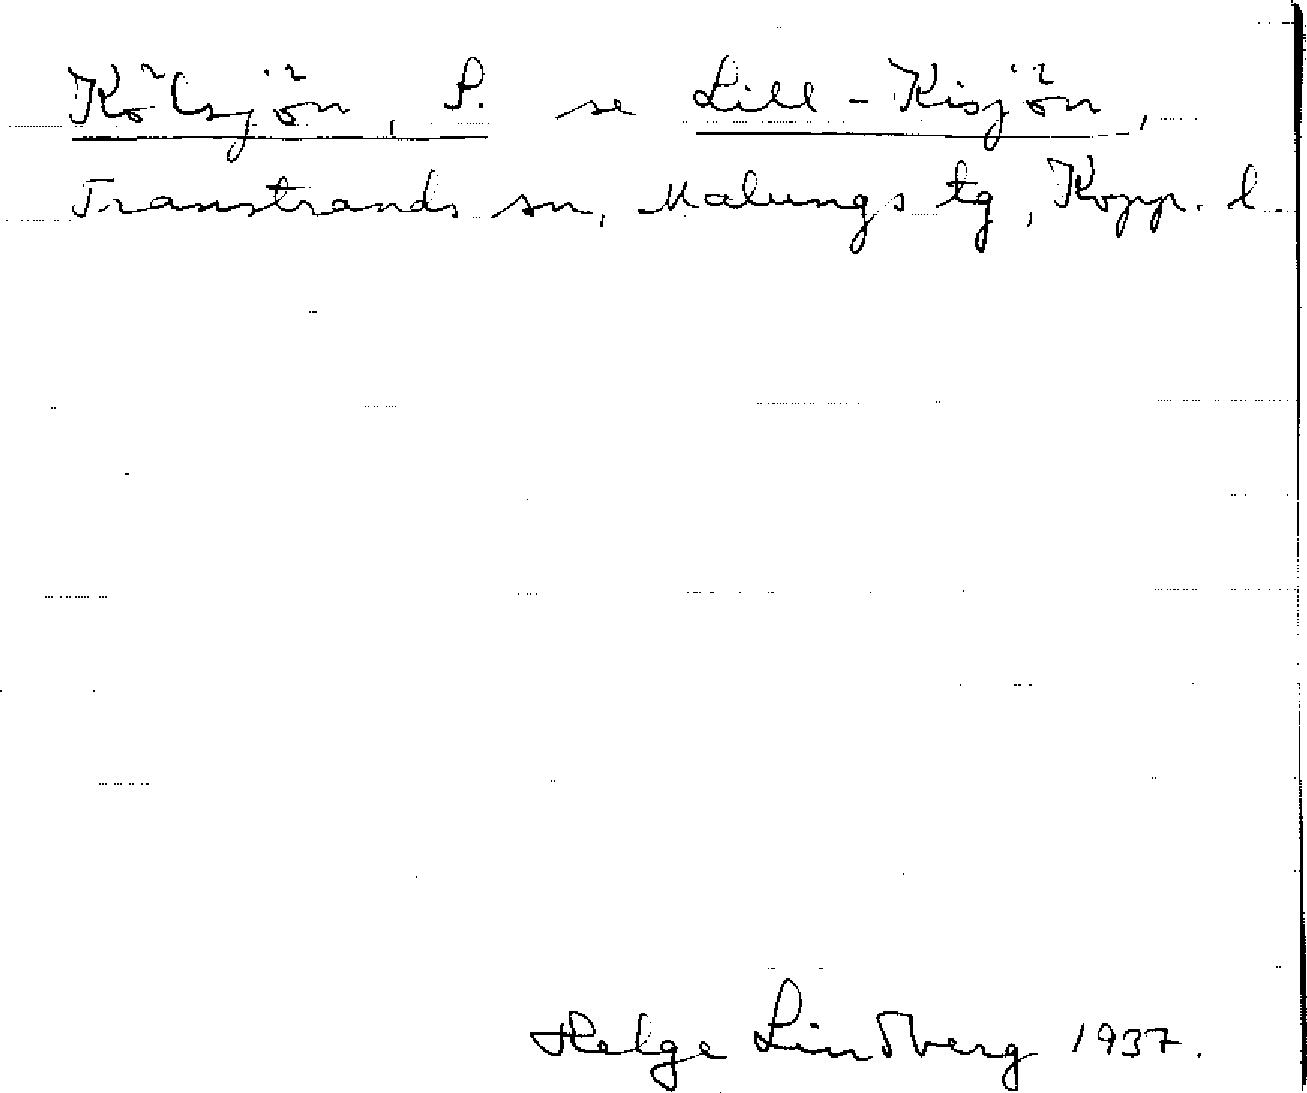 Kölsjön, S. se Lill-Kisjön,
Transtrands sn, Malungs tg, Kopp. l.
Helge Lindberg 1937.